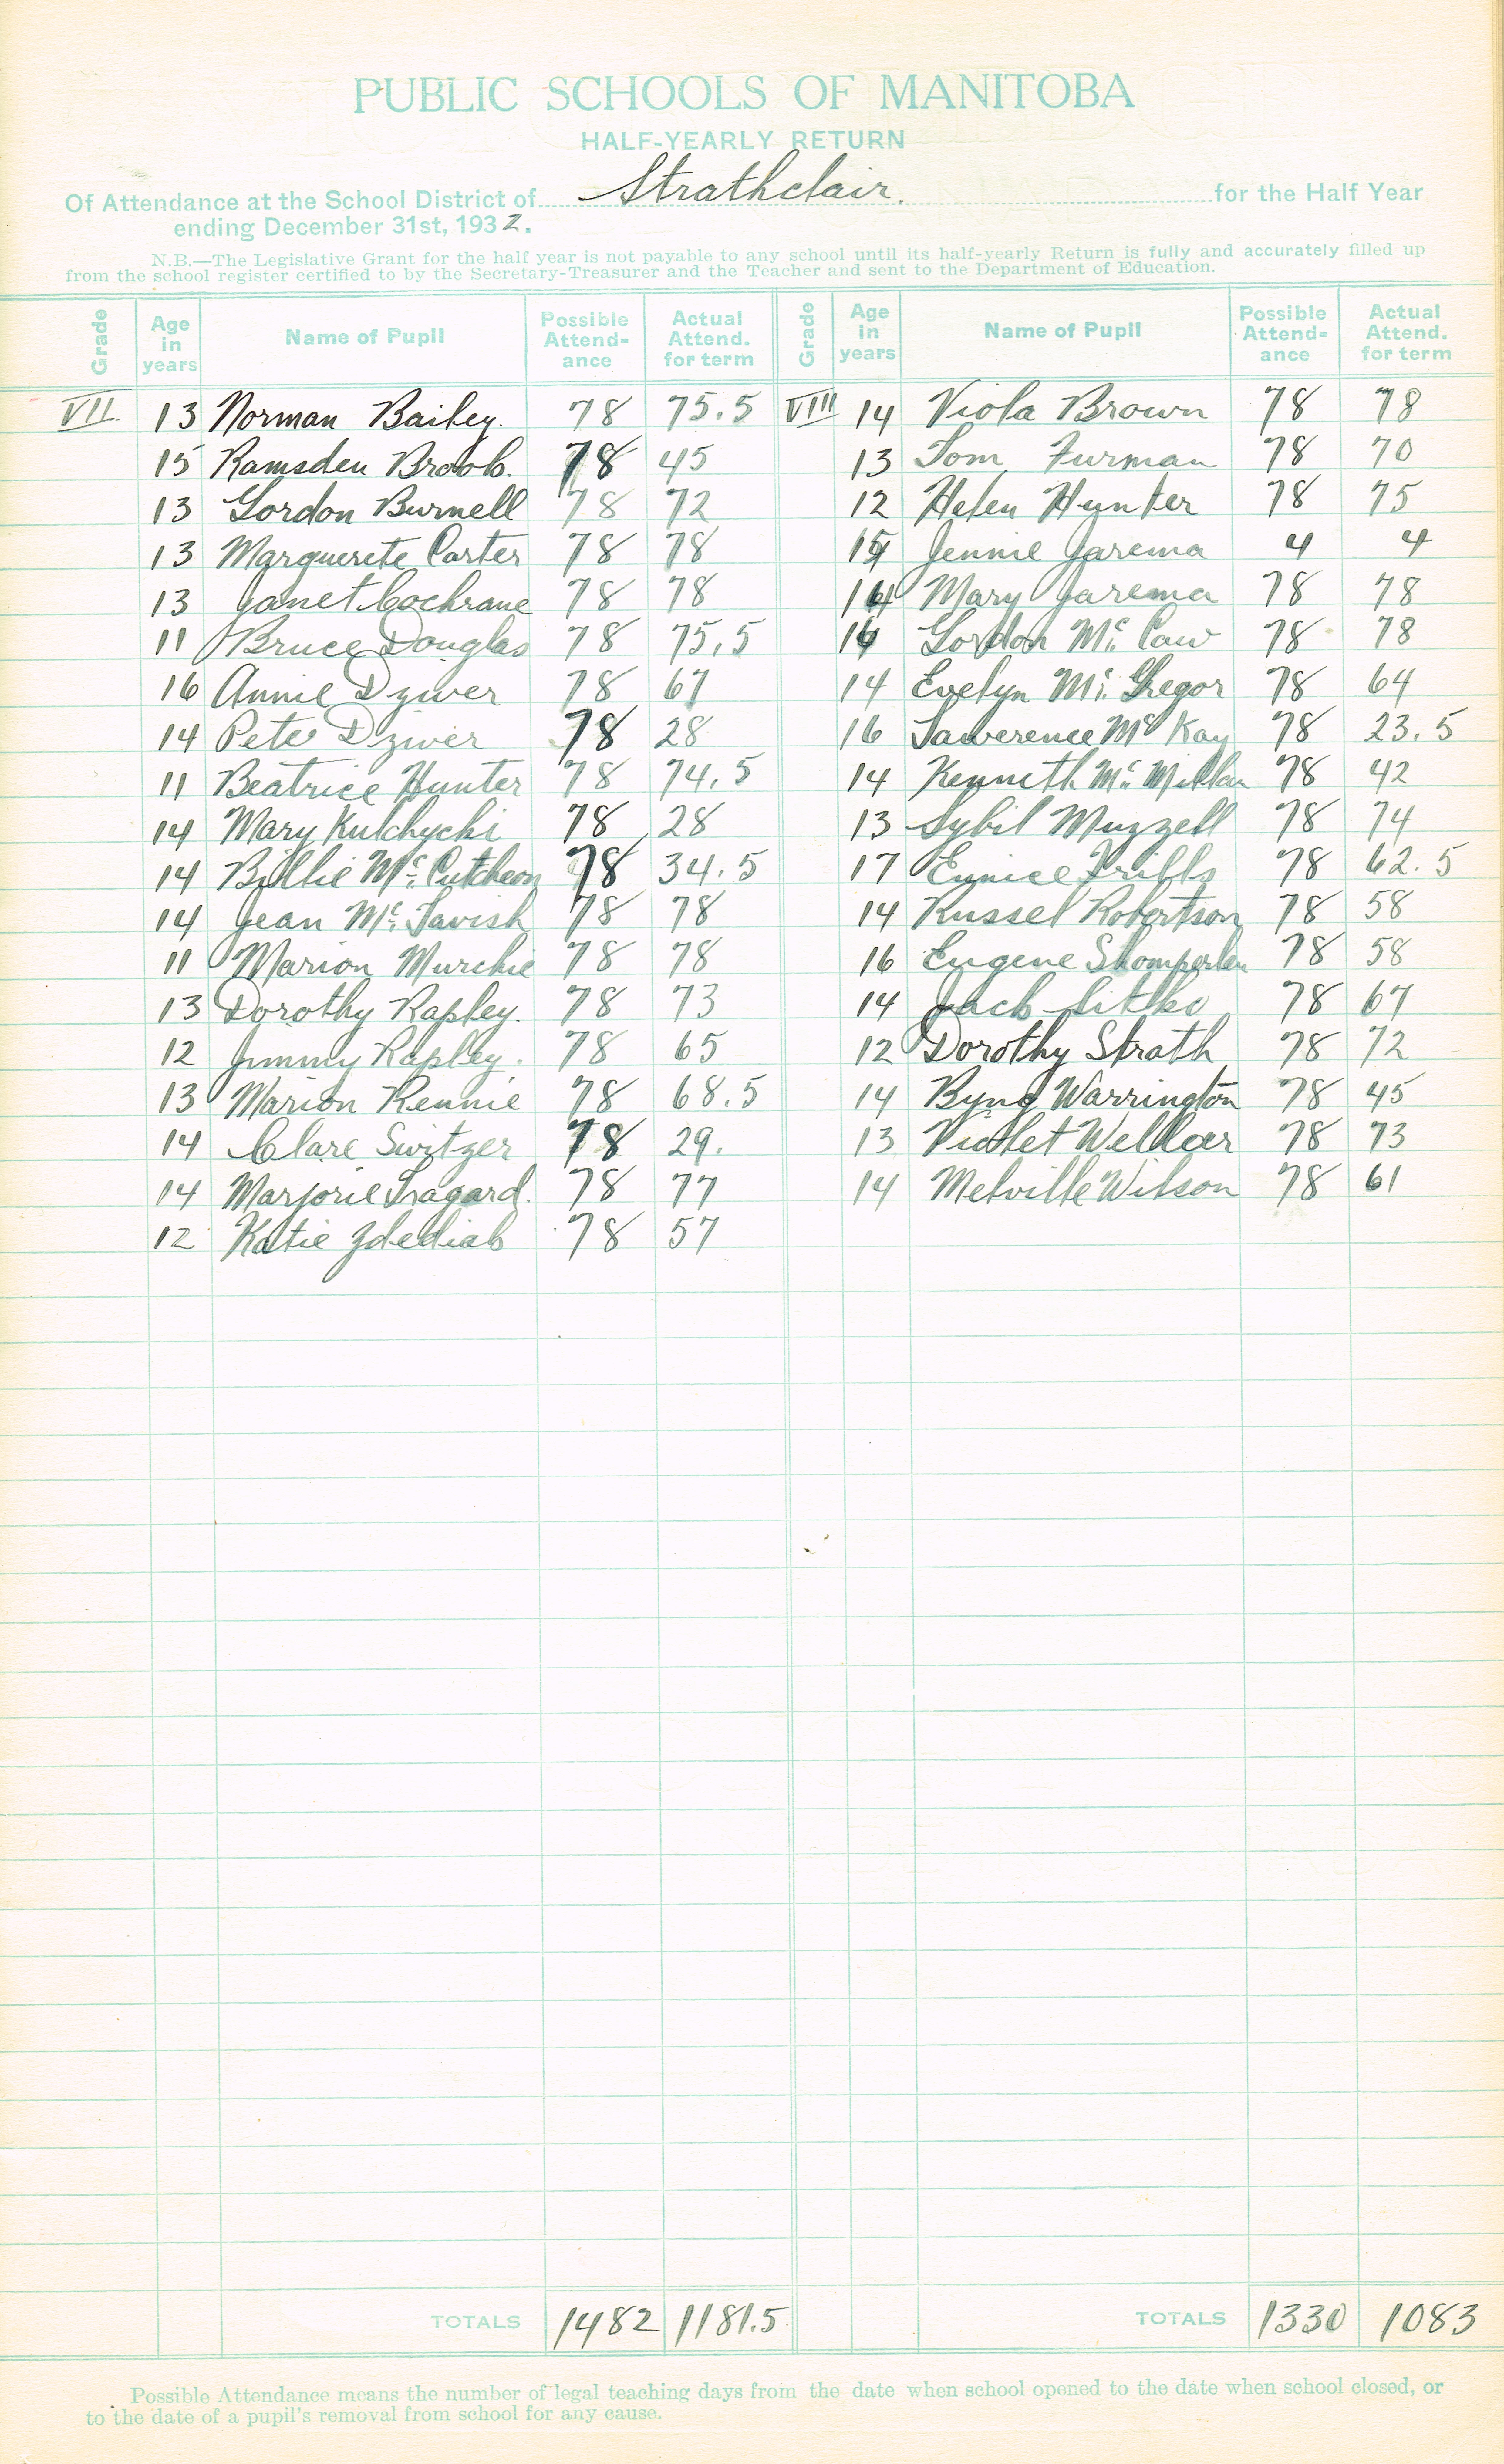 PUBLIC SCHOOLS OF MANITOBA
HALF-YEARLY RETURN
Of Attendance at the School District of Strathclair. for the Half Year
ending December 31st, 1932.
N.B.—The Legislative Grant for the half year is not payable to any school until its half-yearly Return is fully and accurately filled up
from the school register certified to by the Secretary-Treasurer and the Teacher and sent to the Department of Education.
Grade Age in years Name of Pupil Possible Attend-ance Actual Attend. for term
VII 13 Norman Bailey. 78 75.5
15 Ramsden Broob. 78 45
13 Gordon Burnell 78 72
13 Marguerete Carter 78 78
13 Janet Cochrane 78 78
11 Bruce Douglas 78 75.5
16 Annie Dziver 78 67
14 Pete Dziver 78 28
11 Beatrice Hunter 78 74.5
14 Mary Kulchycki 78 28
14 Billie Mc. Cutcheon 78 34.5
14 Jean Mc. Tavish 78 78
11 Marion Murchie 78 78
13 Dorothy Rapley. 78 73
12 Jimmy Rapley. 78 65
13 Marion Rennie 78 68.5
14 Clare Switzer 78 29.
14 Marjorie Tragard. 78 77
12 Katie Zdediab 78 57
TOTALS 1482 1181.5
Grade Age in years Name of Pupil Possible Attend-ance Actual Attend. for term
VIII 14 Viola Brown 78 78
13 Tom Furman 78 70
12 Helen Hunter 78 75
Jennie Jarema 4 4
Mary Jarema 78 78
Gordon Mc. Caw 78 78
14 Evelyn Mc. Gregor 78 64
16 Lawerence Mc Kay 78 23.5
14 Kenneth Mc. Millan 78 42
13 Sybil Muzzell 78 74
17 Eunice Fribbs 78 62.5
14 Russel Robertson 78 58
16 Eugene 78 58
14 Jack Sitko 78 67
12 Dorothy Strath 78 72
14 Byng Warrington 78 45
13 Violet Wellar 78 73
14 Melville Wilson 78 61
TOTALS 1330 1083
Possible Attendance means the number of legal teaching days from the date when school opened to the date when school closed, or
to the date of a pupil's removal from school for any cause.